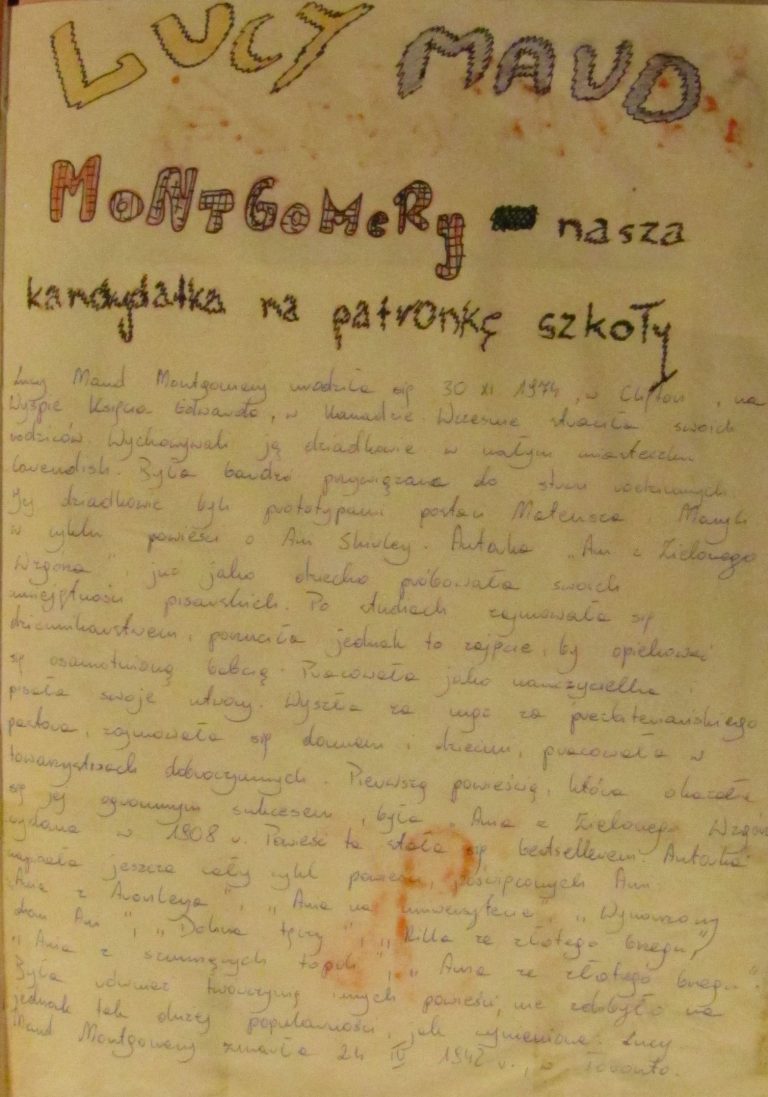 LUCY MAUD
MONTGOMERY - nasza
kandydatka na patronkę szkoły
Lucy Maud Montgomery urodziła się 30 XI 1974, w Clifton, na
Wyspie Księcia Edwarda, w Kanadzie. Wcześnie straciła swoich
rodziców. Wychowywali ją dziadkowie w małym miasteczku
Cavendish. Była bardzo przywiązana do stron rodzinnych.
Jej dziadkowie byli prototypami postaci Mateusza i Maryli
w cyklu powieści o Ani Shirley. Autorka „Ani z Zielonego
Wzgórza", już jako dziecko próbowała swoich
umiejętności pisarskich. Po studiach zajmowała się
dziennikarstwem, porzuciła jednak to zajęcie, by opiekować
się osamotnioną babcią. Pracowała jako nauczycielka i
pisała swoje utwory. Wyszła za mąż za prezbiteriańskiego
pastora, zajmowała się domem i dziećmi, pracowała w
towarzystwach dobroczynnych. Pierwszą powieścią, która okazała
się jej ogromnym sukcesem, była „Ania z Zielonego Wzgórza
wydana w 1908 r. Powieść ta stała się bestsellerem. Autorka
napisała jeszcze cały cykl powieści, poświęconych Ani:
„Ania z Avonlea", „Ania na uniwersytecie", „Wymarzony
dom Ani", „Dolina tęczy", „Rilla ze złotego brzegu",
„Ania z szumiących topoli", „Ania ze złotego brzegu".
Była również twórczynią innych powieści, nie zdobyło na
jednak tak dużej popularności, jak wymienione. Lucy
Maud Montgomery zmarła 24 IV 1942 r., w Toronto.